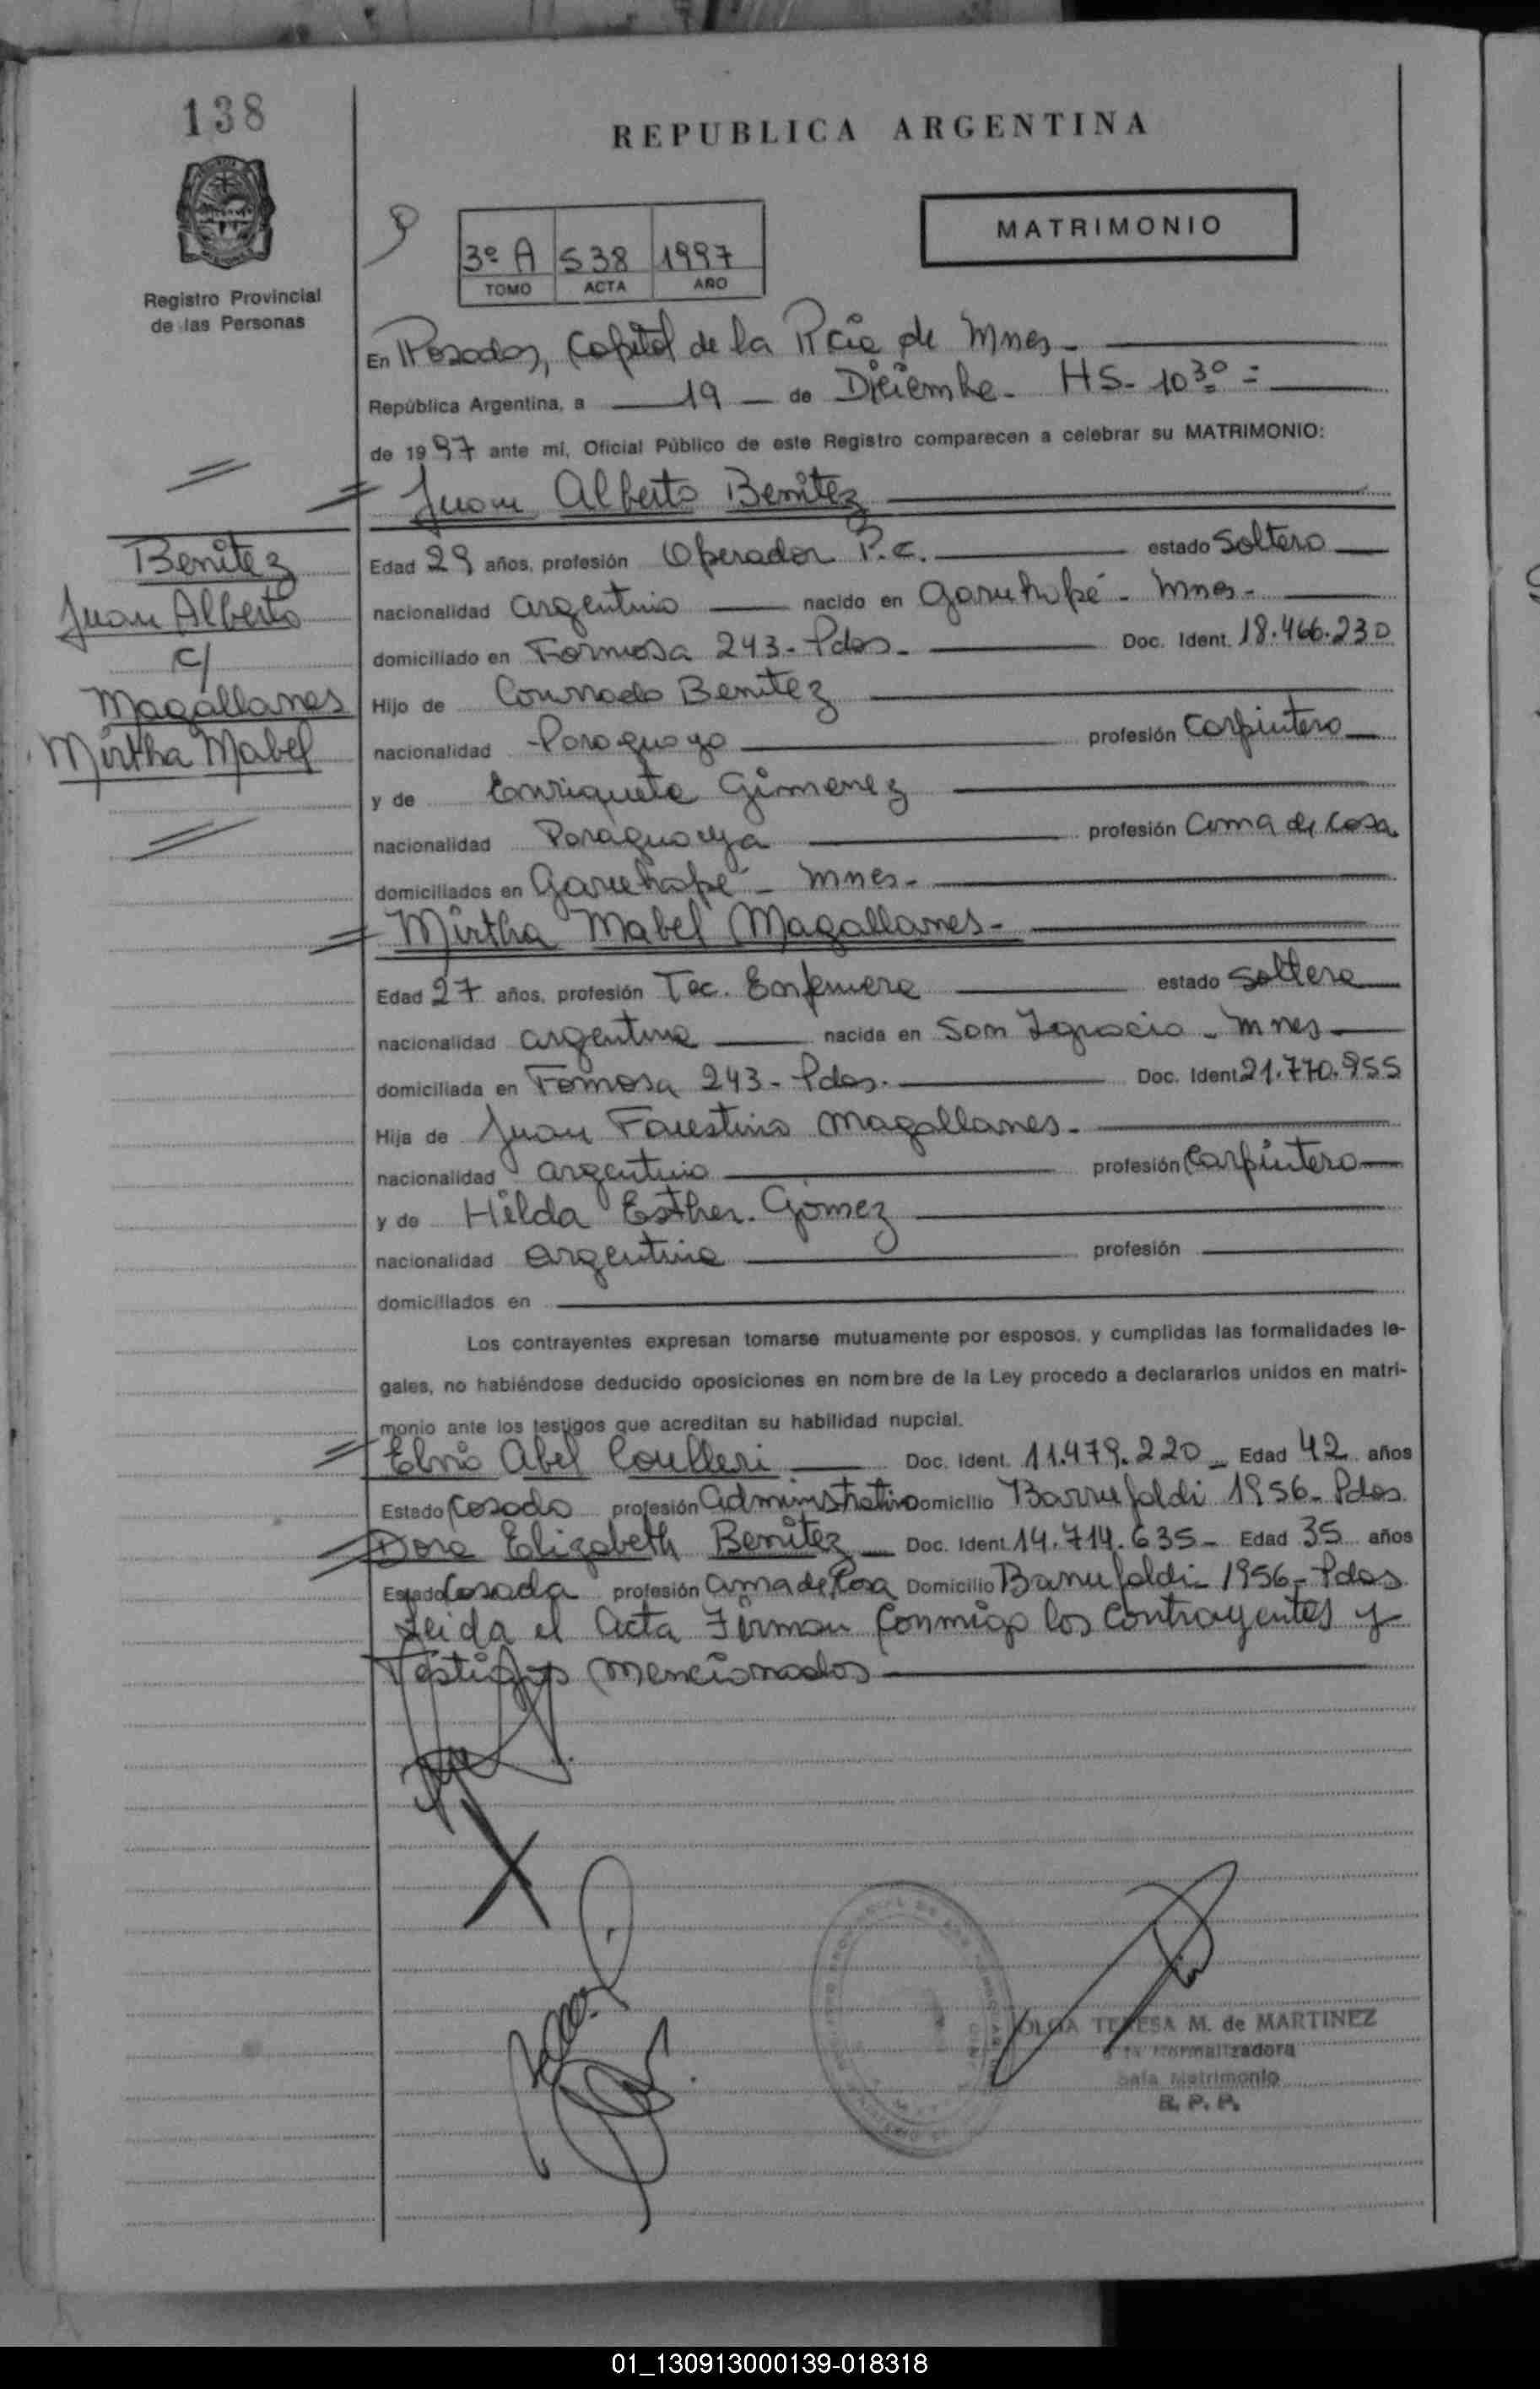 138
REPUBLICA ARGENTINA
MATRIMONIO
3º A 538 1997
TOMO ACTA AÑO
Registro Provincial
de las Personas
En Posadas, Capital de la Pcia de Mnes-
República Argentina, a 19 de Diciembre - HS- 10 30 =
de 1997 ante mí, Oficial Público de este Registro comparecen a celebrar su MATRIMONIO:
Juan Alberto Benitez
Benitez
Juan Alberto
c/
Magallanes
Mirtha Mabel
Edad 29 años, profesión Operador P.C. estado Soltero
nacionalidad argentino nacido en Garuhapé - Mnes-
domiciliado en Formosa 243- Pdas- Doc. Ident. 18.466.230
Hijo de Conrrado Benitez
nacionalidad Paraguayo profesión Carpintero
y de Enriqueta Gimenez
nacionalidad Paraguaya profesión ama de casa
domiciliados en Garuhapé - Mnes-
Mirtha Mabel Magallanes-
Edad 27 años, profesión Tec. Enfermera estado Soltera
nacionalidad argentina nacida en San Ignacio - Mnes
domiciliada en Formosa 243- Pdas. Doc. Ident 21.770.955
Hija de Juan Faustino Magallanes-
nacionalidad argentino profesión Carpintero
y de Hilda Esther Gómez
nacionalidad argentina profesión
domiciliados en
Los contrayentes expresan tomarse mutuamente por esposos, y cumplidas las formalidades le-
gales, no habiéndose deducido oposiciones en nombre de la Ley procedo a declararlos unidos en matri-
monio ante los testigos que acreditan su habilidad nupcial.
Elvio Abel Coulleri Doc. Ident. 11.479.220 Edad 42 años
Estado Casado profesión administrativo Domicilio Barrufaldi 1956- Pdas
Dora Elizabeth Benitez Doc. Ident 14.714.635- Edad 35 años
Estado Casada profesión ama de Casa Domicilio Barrufaldi- 1956- Pdas
Leida el Acta Firman Conmigo los contrayentes y
Testigos mencionados
OLGA TERESA M. de MARTINEZ
Normalizadora
Sala Matrimonio
R. P. P.
01_130913000139-018318